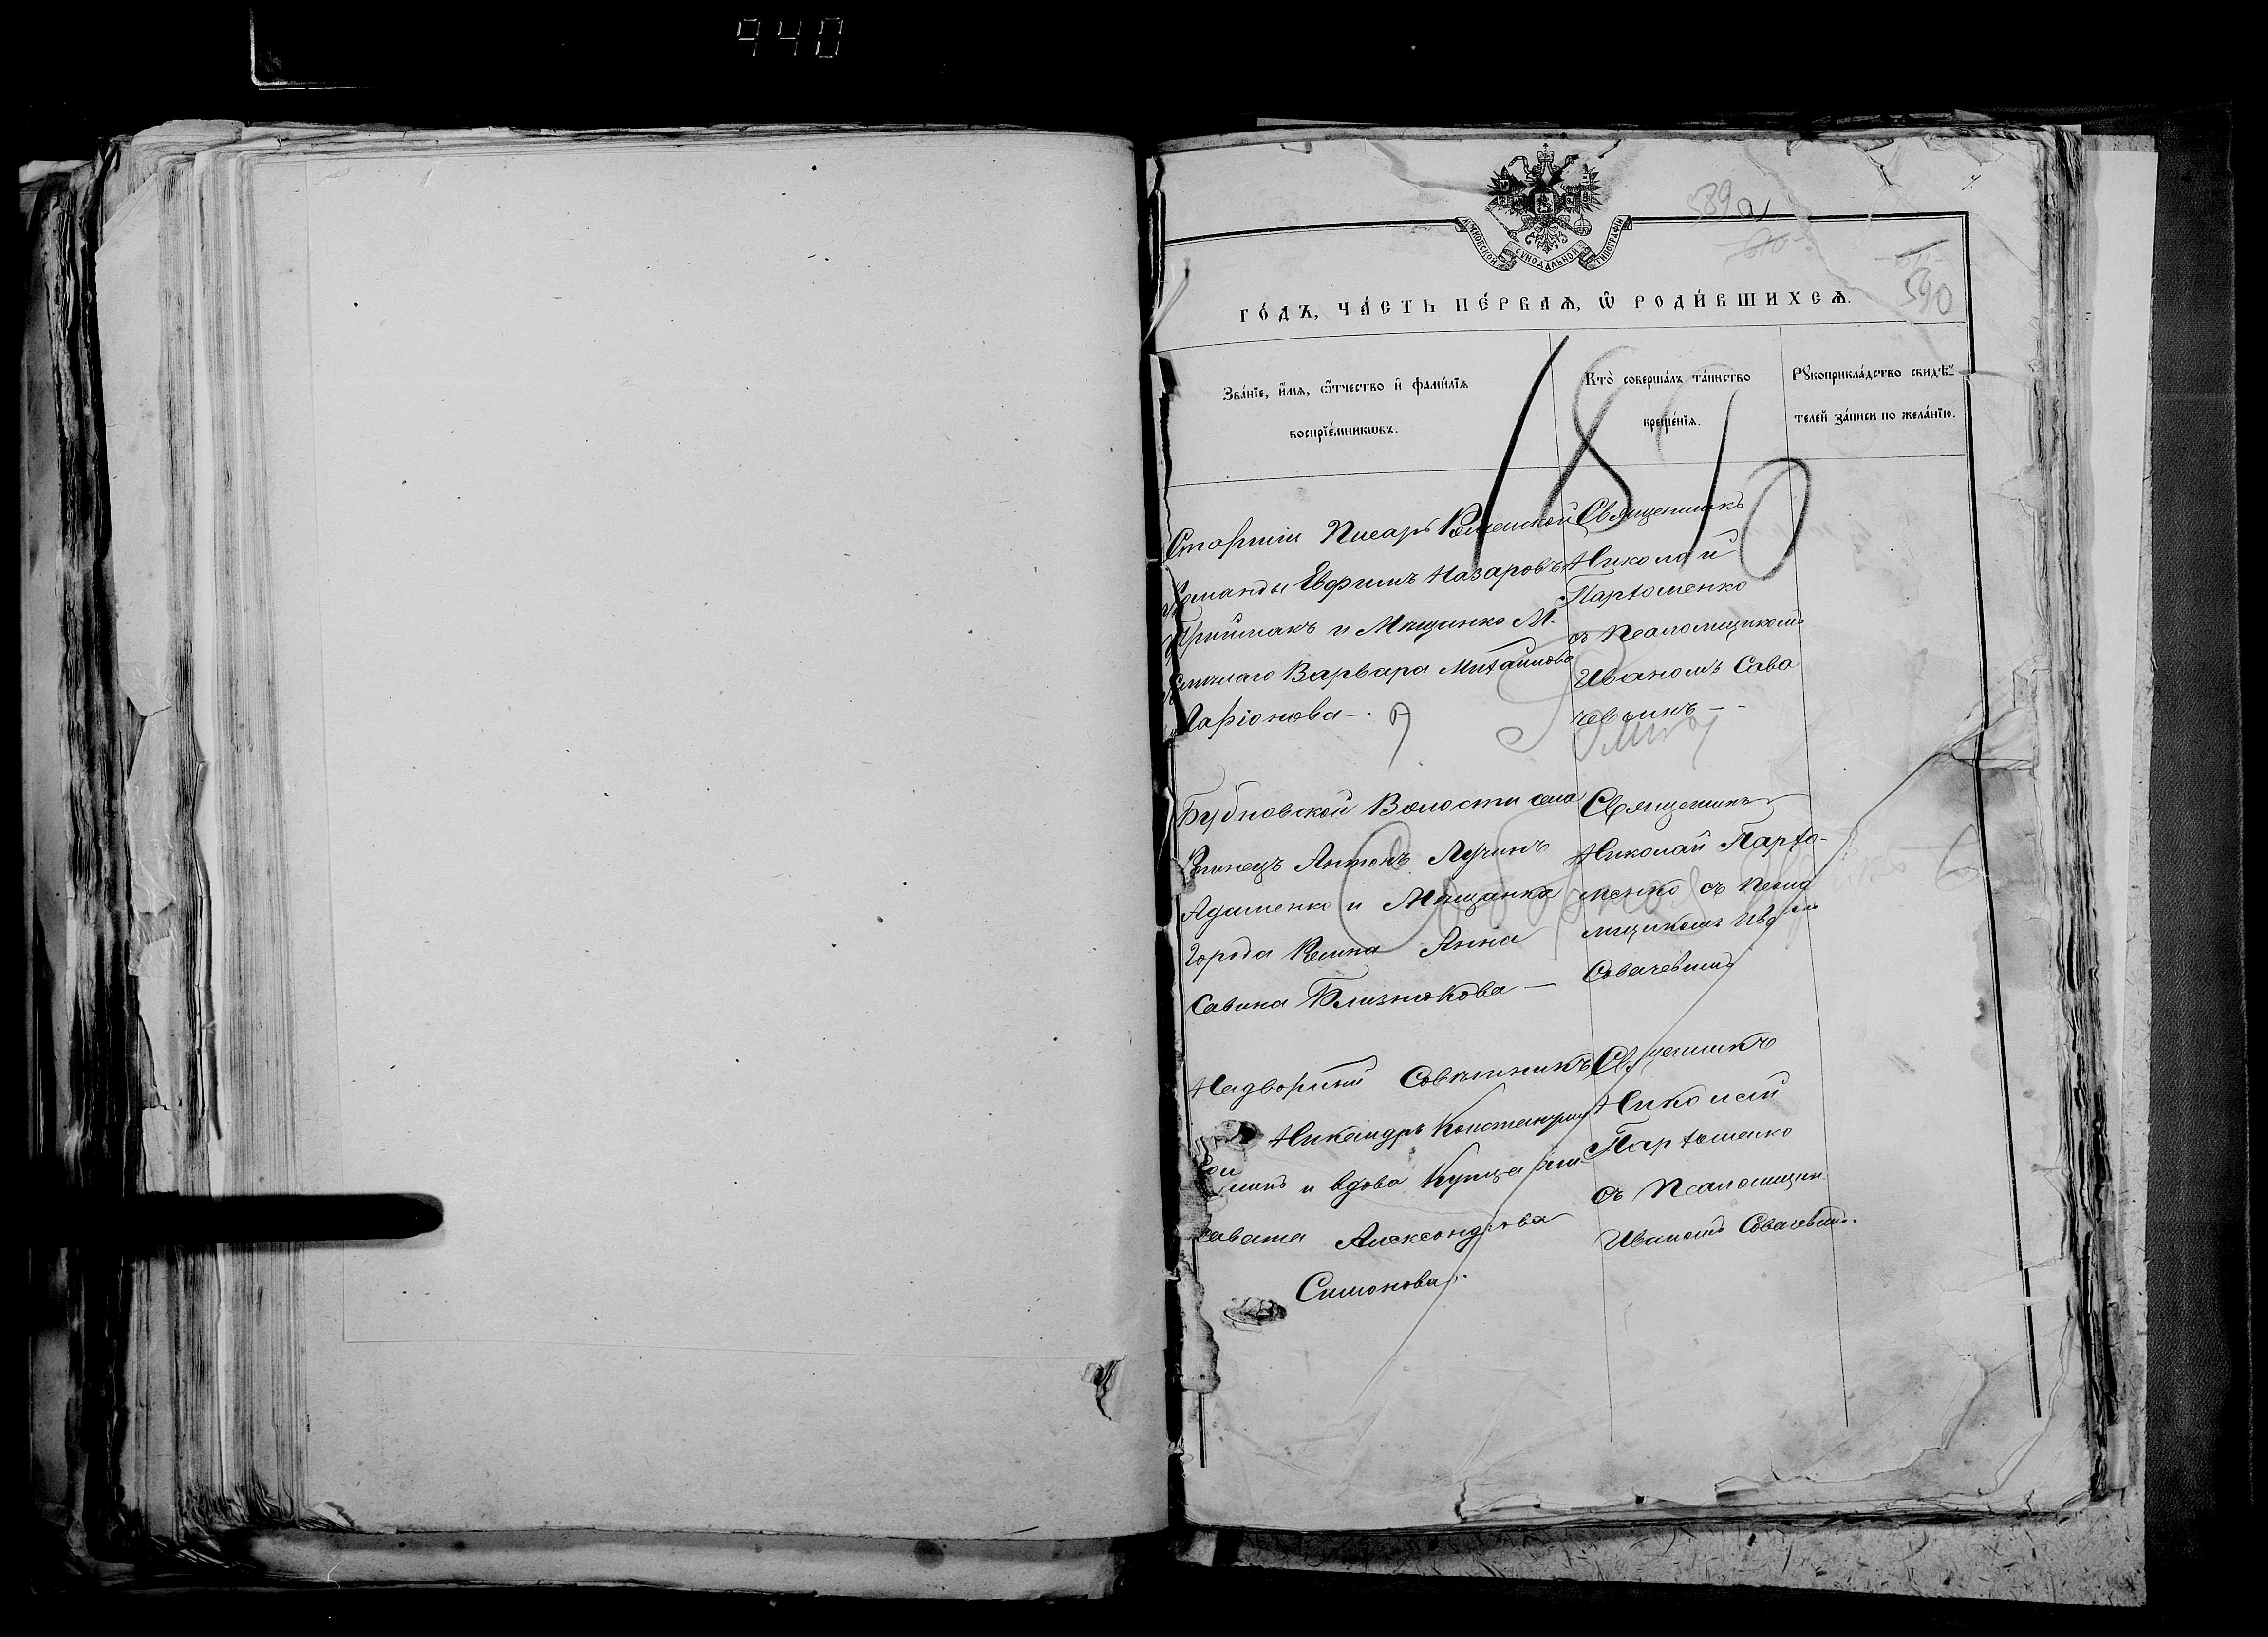 940
МОСКОВСКОЙ СѴНОДАЛЬНОЙ ТИПОГРАФІИ
389а
390
ГО́ДЪ, ЧА́СТЬ ПЕ́РВАѦ, Ѡ҆ РОДИ́ВШИХСѦ.
Зва́нїе, и҆́мѧ, ѻ҆́тчество и҆ фами́лїѧ
воспрїе́мникѡвъ.
Кто̀ соверша́лъ та́инство
креще́нїѧ.
Рꙋкоприкла́дство свидѣ́-
телей за́писи по жела́нїю.
1810
Старшій Писарь
Команды Евфимъ Назаровъ
Приймакъ и Мѣщанка М.
Варвара Михайлова
Ларіонова
Священникъ
Николай
Парѳоменко
съ Псаломщикомъ
Иваномъ Сава
чевымъ
Бубновской Волости села
Антонъ Лукинъ
Адаменко и Мѣщанка
города Анна
Савина Близнюкова
Священникъ
Николай Парѳо-
менко съ Псало
мщикомъ Ива
Савачевымъ
Надворный Совѣтникъ
Никандръ Константин
и вдова Купца Ели
савета Александрова
Симонова.
Священникъ
Николай
Парѳоменко
съ Псаломщик.
Иваномъ Савачевымъ.